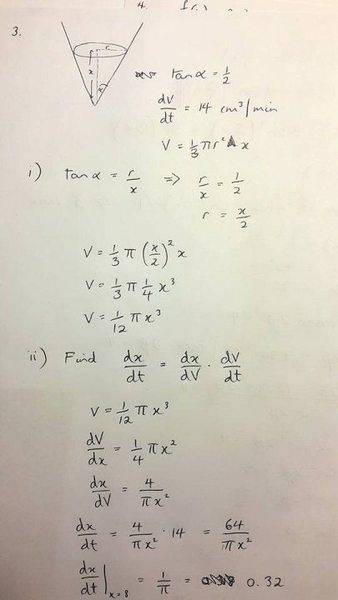 4.
3.
r
x
α
tan α = 1/2
dV/dt = 14 cm³/min
V = 1/3 π r² x
i) tan α = r/x ⇒ r/x = 1/2
r = x/2
V = 1/3 π (x/2)² x
V = 1/3 π 1/4 x³
V = 1/12 π x³
ii) Find dx/dt = dx/dV · dV/dt
V = 1/12 π x³
dV/dx = 1/4 π x²
dx/dV = 4/πx²
dx/dt = 4/πx² · 14 = 64/πx²
dx/dt |x=8 = 1/π = 0.32